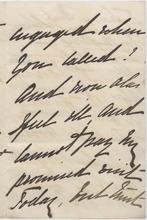 engaged when
you called?
And now alas
I feel it, and
cannot pay my
promised visit
Today, but trust